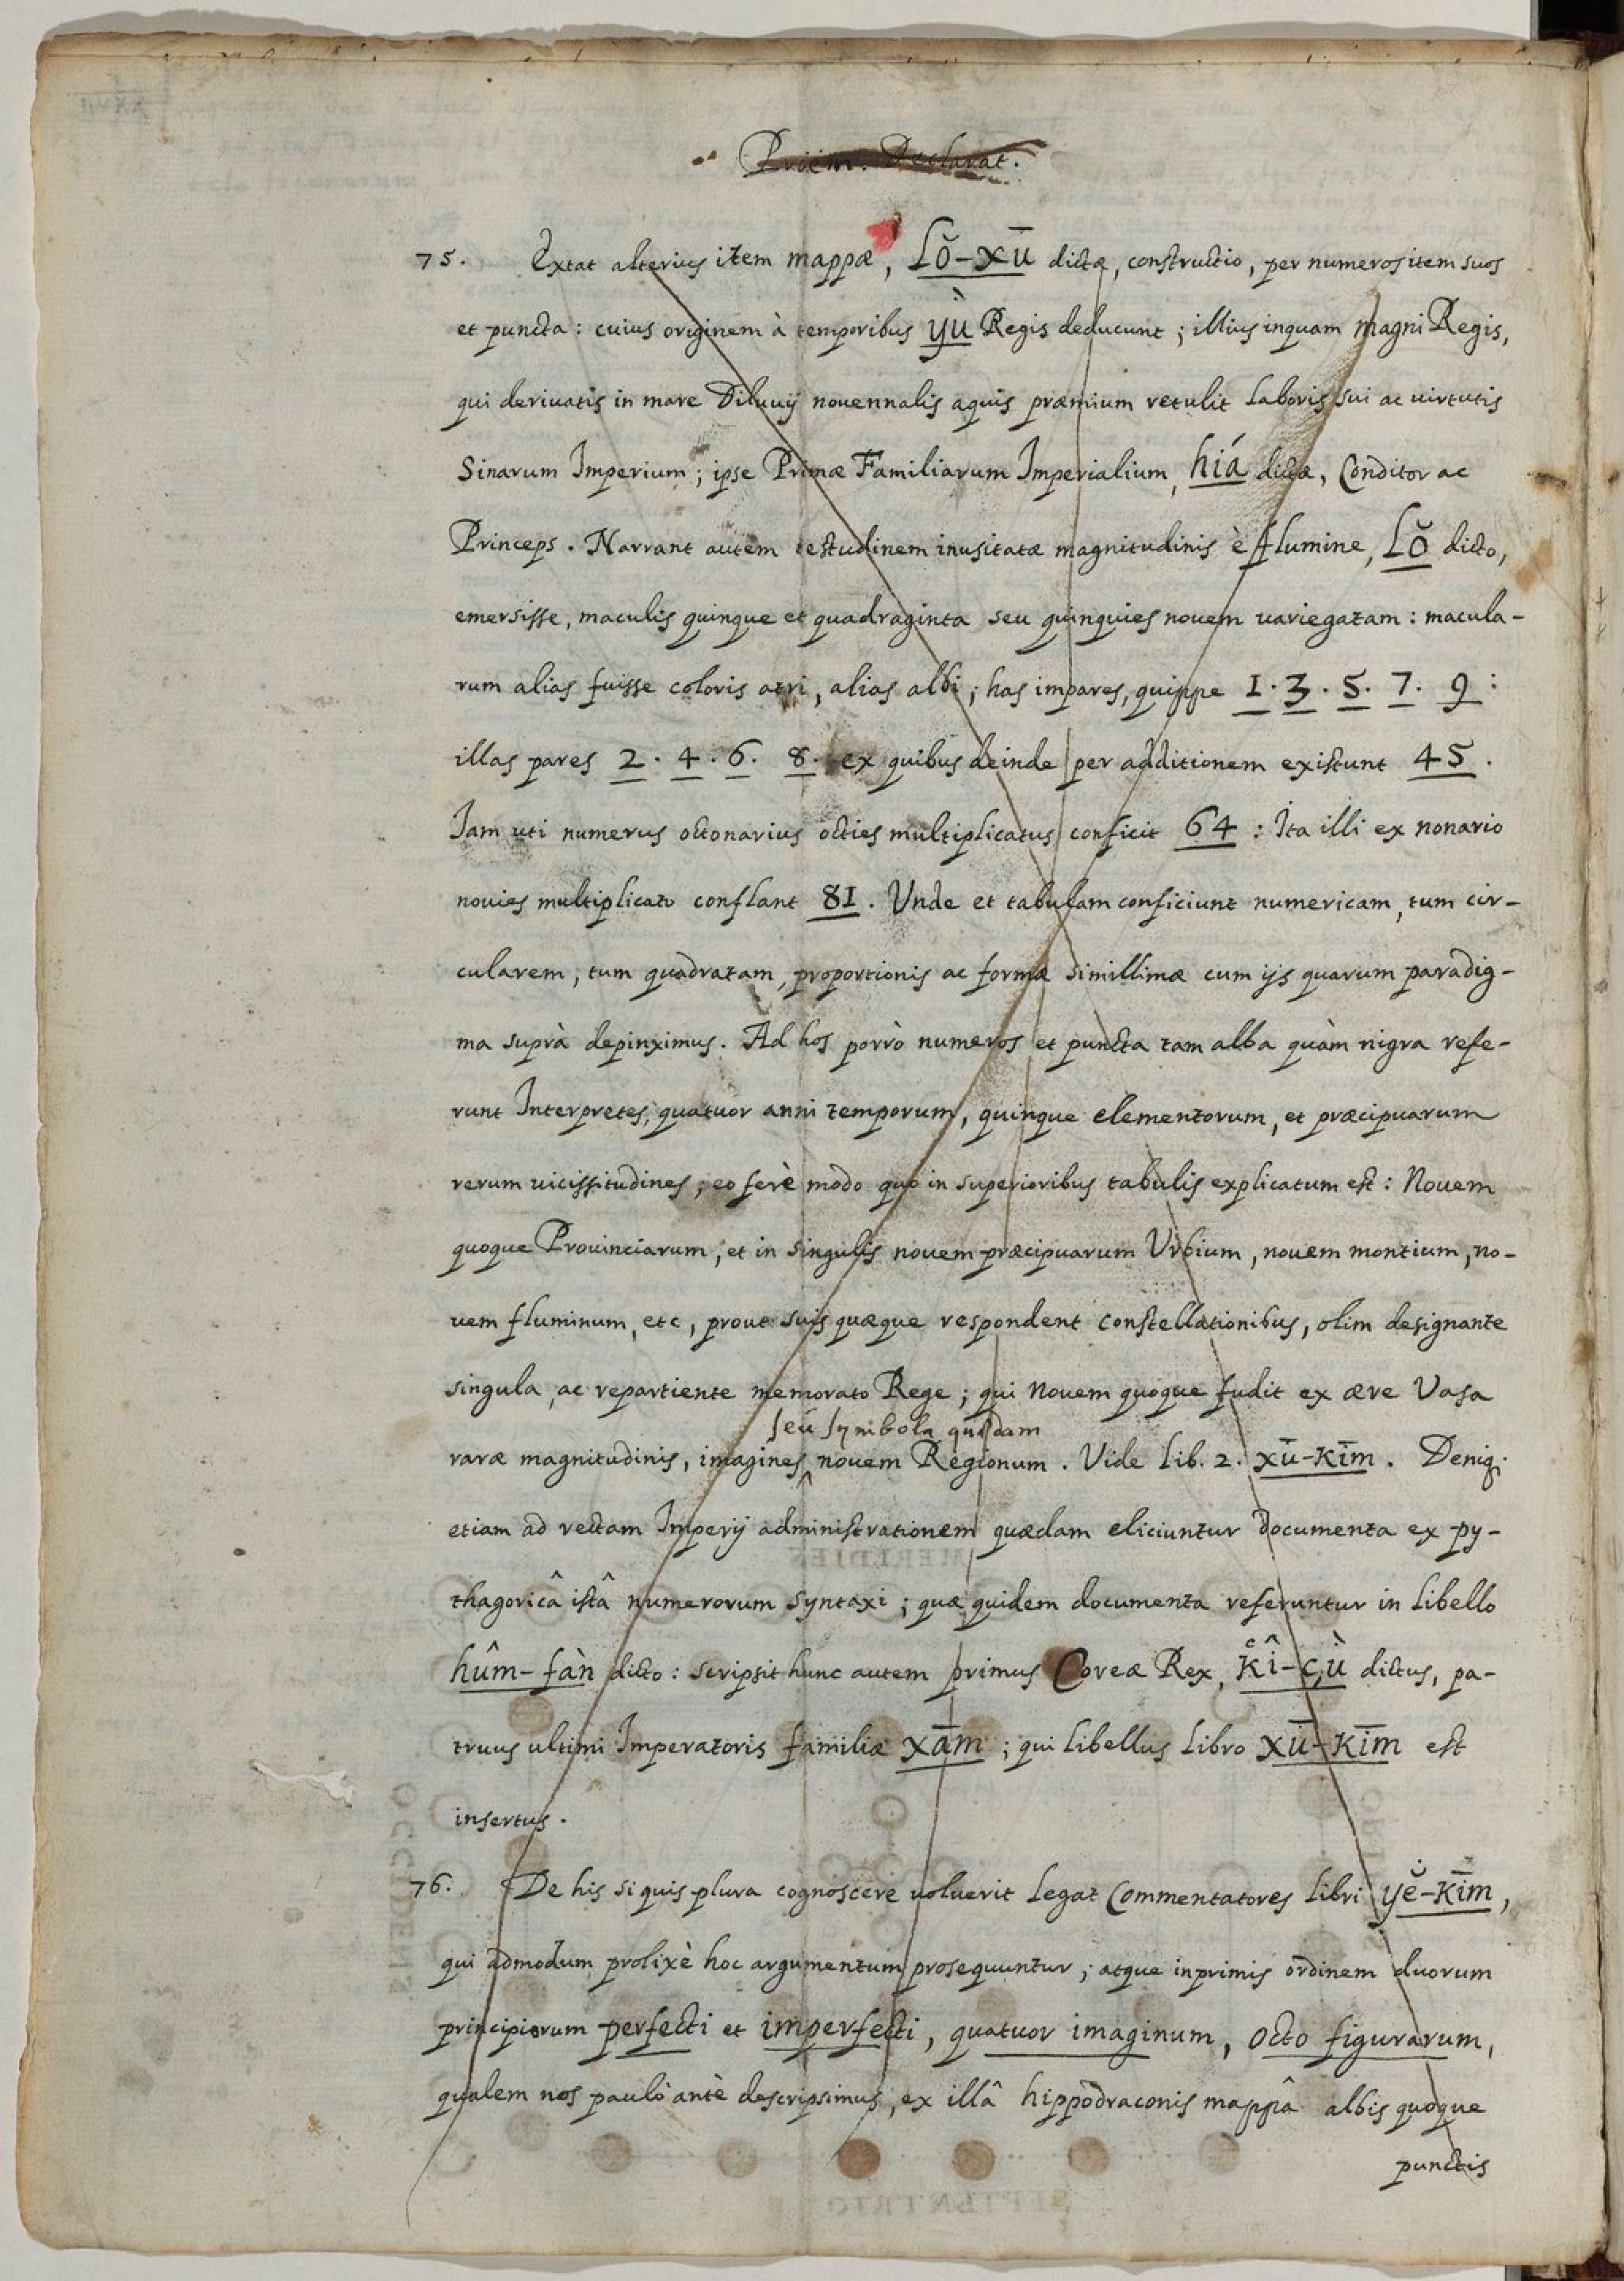 Proëm. Declarat.
75. Extat alterius item mappæ, Lŏ-xū dictæ, constructio, per numeros item suos
et puncta: cuius originem à temporibus yù Regis deducunt; illius inquam magni Regis,
qui derivatis in mare Diluvij novennalis aquis præmium retulit laboris sui ac virtutis
Sinarum Imperium; ipse Primæ Familiarum Imperialium, hiá dictæ, Conditor ac
Princeps. Narrant autem testudinem inusitatæ magnitudinis è flumine, Lŏ dicto,
emersisse, maculis quinque et quadraginta seu quinquies novem variegatam: macula-
rum alias fuisse coloris atri, alias albi; has impares, quippe 1. 3. 5. 7. 9:
illas pares 2. 4. 6. 8. ex quibus deinde per additionem existunt 45.
Jam uti numerus octonarius octies multiplicatus conficit 64: Ita illi ex nonario
novies multiplicato conflant 81. Unde et tabulam conficiunt numericam, tum cir-
cularem, tum quadratam, proportionis ac formæ simillimæ cum ijs quarum paradig-
ma suprà depinximus. Ad hos porrò numeros et puncta tam alba quàm nigra refe-
runt Interpretes, quatuor anni temporum, quinque elementorum, et præcipuarum
rerum vicissitudines; eo ferè modo quo in superioribus tabulis explicatum est: Novem
quoque Provinciarum, et in singulis novem præcipuarum Urbium, novem montium, no-
vem fluminum, etc, prout suis quæque respondent constellationibus, olim designante
singula, ac repartiente memorato Rege; qui novem quoque fudit ex ære Vasa
seu symbola quædam
raræ magnitudinis, imagines ^ novem Regionum. Vide Lib. 2. xū-kīm. Deniq;
etiam ad rectam Imperij administrationem quædam eliciuntur documenta ex py-
thagoricâ istâ numerorum syntaxi; quæ quidem documenta referuntur in Libello
hûm-fàn dicto: scripsit hunc autem primus Coreæ Rex, Kî-çù dictus, pa-
truus ultimi Imperatoris familiæ xām; qui Libellus Libro xū-kīm est
insertus.
76. De his siquis plura cognoscere voluerit legat Commentatores Libri yĕ-kīm,
qui admodum prolixè hoc argumentum prosequuntur; atque inprimis ordinem duorum
principiorum perfecti et imperfecti, quatuor imaginum, octo figurarum,
qualem nos paulò antè descripsimus, ex illâ hippodraconis mappâ albis quoque
punctis